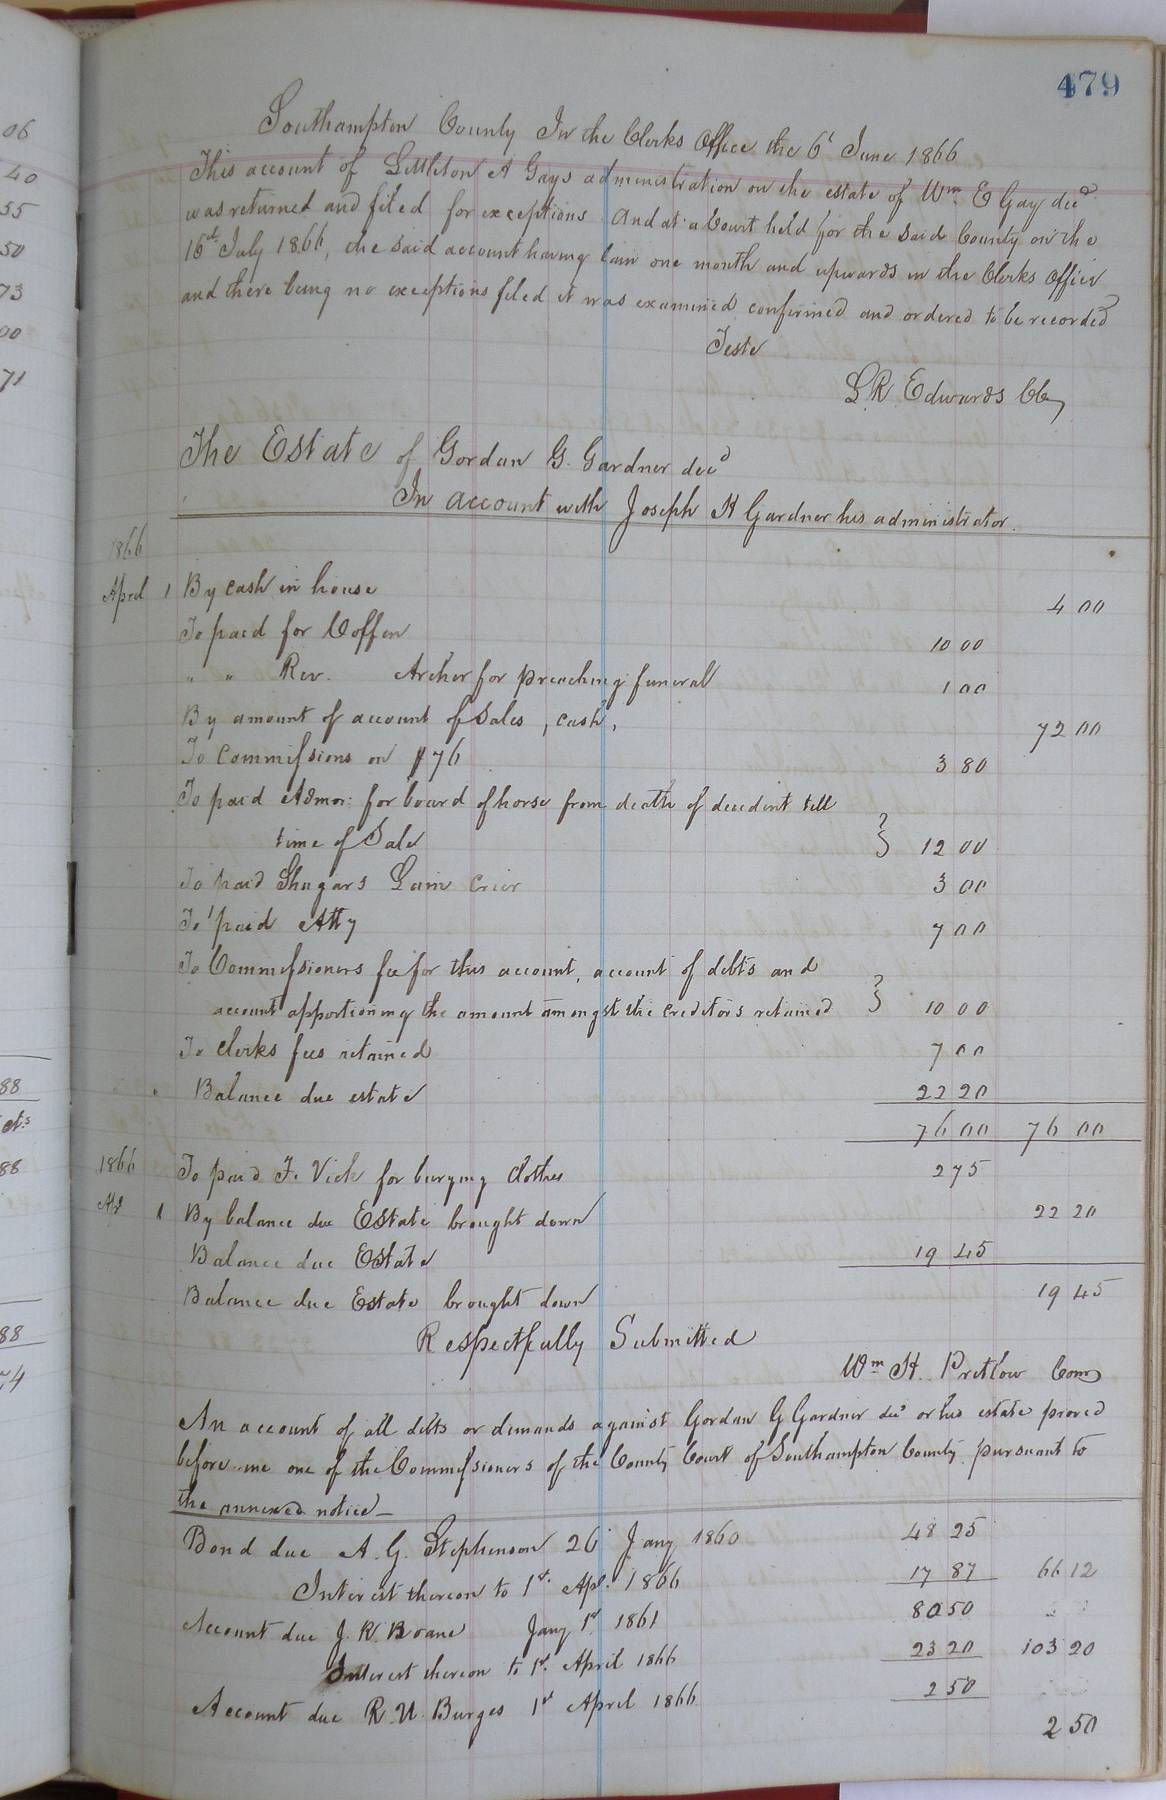 479
Southampton County In the Clerks Office the 6t June 1866
This account of Littleton A Gays administration on the estate of Wm E Gay decd
was returned and filed for exceptions And at a Court held for the said County on the
16th July 1866, the said account having lain one month and upwards in the Clerks office
and there being no exceptions filed it was examined confirmed and ordered to be recorded
Teste
L R Edwards CC
The Estate of Gordan G. Gardner decd
In account with Joseph H Gardner his administrator.
1866
April 1 By cash in house 4 00
To paid for Coffin 10 00
" " Rev. Archer for preaching funeral 1 00
By amount of account of Sales, cash, 72 00
To Commissions on $76 3 80
To paid Admor: for board of horse from death of decedent till
time of Sale } 12 00
To paid Shugars Lain Crier 3 00
To paid Atty 7 00
To Commissioners fee for this account, account of debts and
account apportioning the amount amongst the creditors retained } 10 00
To Clerks fees retained 7 00
" Balance due estate 22 20
76 00 76 00
1866 To paid F. Vick for burying Clothes 2 75
Apl 1 By balance due Estate brought down 22 20
Balance due Estate 19 45
Balance due Estate brought down 19 45
Respectfully Submitted
Wm H. Pretlow Com
An account of all debts or demands against Gordan G Gardner decd or his estate proved
before me one of the Commissioners of the County Court of Southampton County pursuant to
the annexed notice
Bond due A. G. Stephenson 26 Jany 1860 48 25
Interest thereon to 1st Apl. 1866 17 87 66 12
Account due J. R. Boane Jany 1st 1861 80 50
Interest thereon to 1st April 1866 23 20 103 20
Account due R. U. Burges 1st April 1866 2 50
2 50
06
40
55
50
73
00
71
88
cts
88
88
74